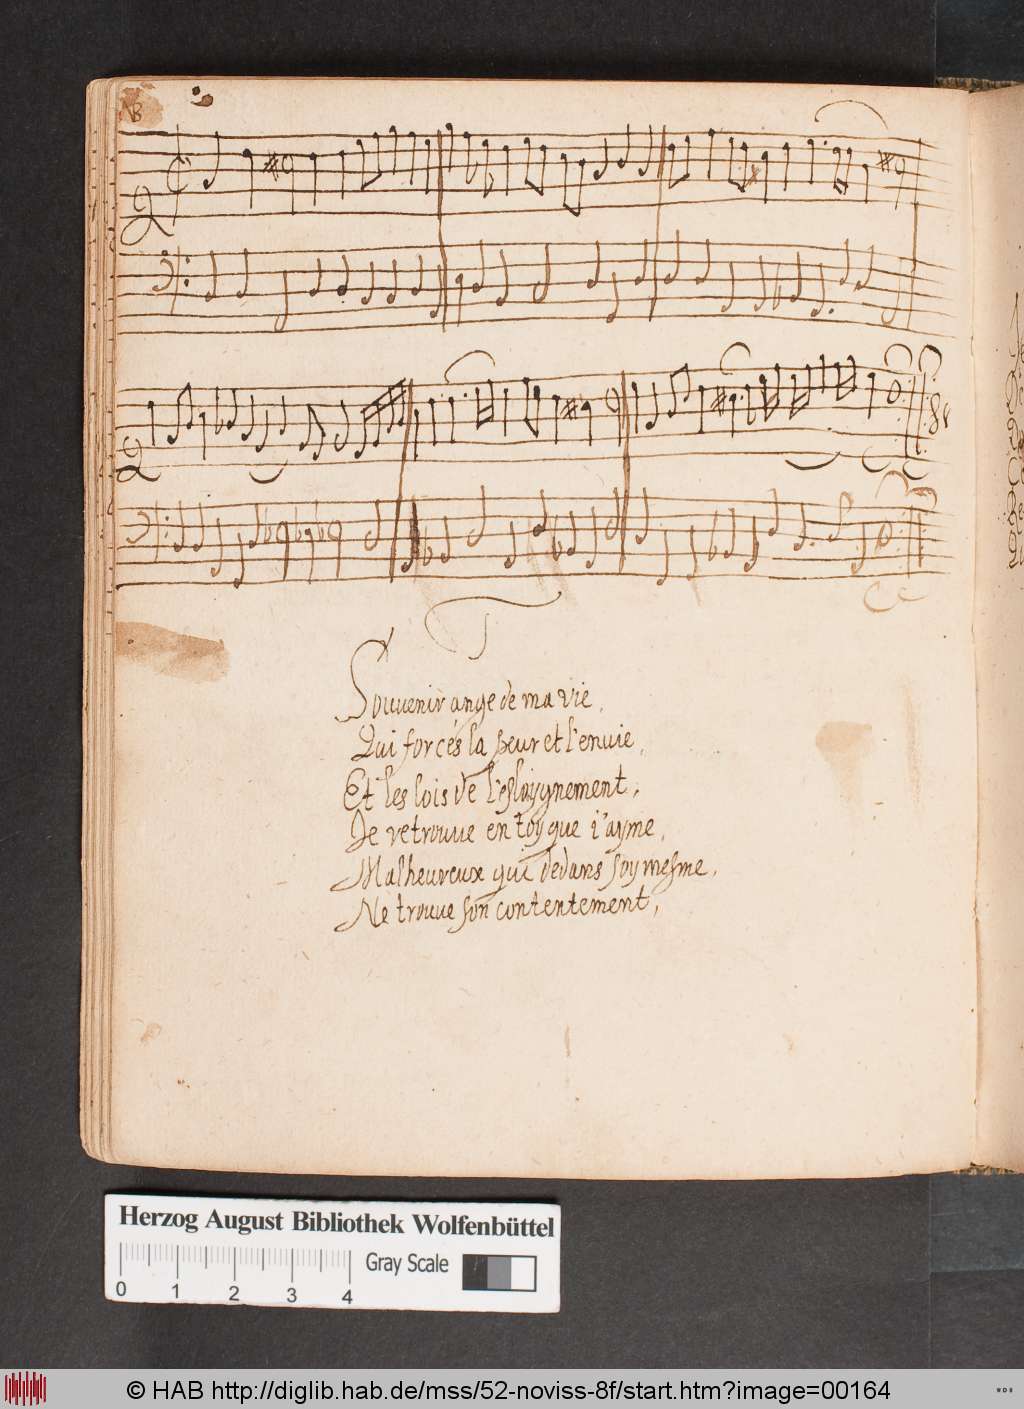 Souuenir ange de ma vie,
Qui forcés la peur et l'enuie,
Et les lois de l'esloygnement,
Je retrouue en toy que i'ayme,
Malheureux qui dedans soy mesme,
Ne trouue son contentement,
Herzog August Bibliothek Wolfenbüttel
Gray Scale
0 1 2 3 4
© HAB http://diglib.hab.de/mss/52-noviss-8f/start.htm?image=00164